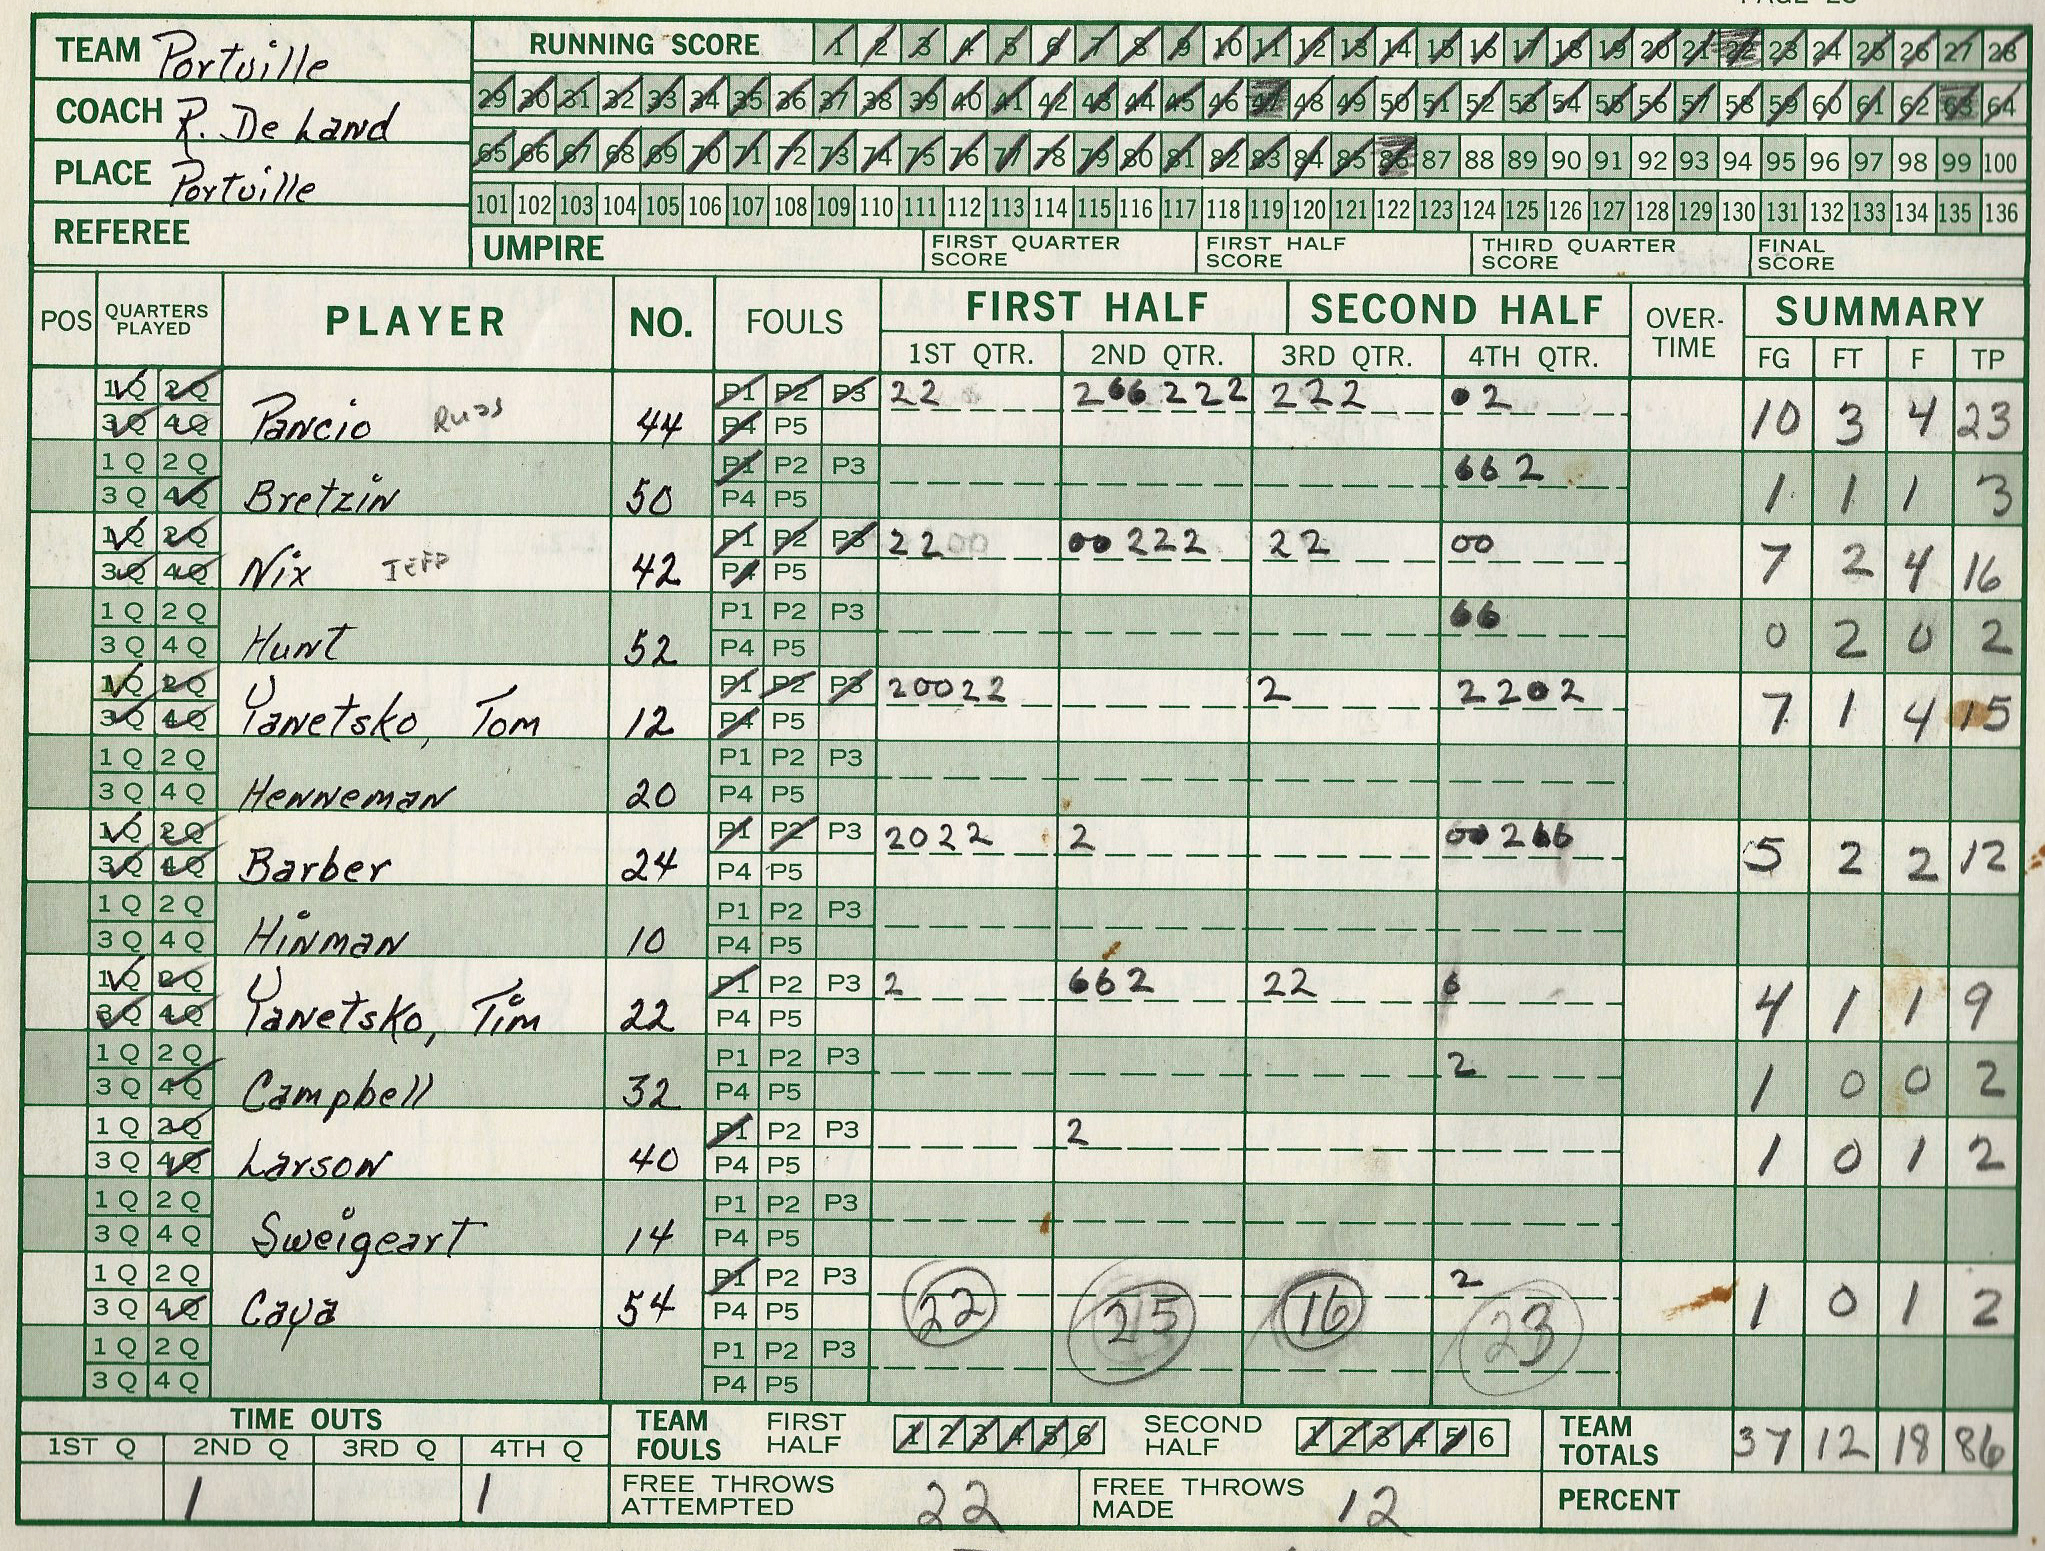 TEAM Portville
COACH R. De Land
PLACE Portville
REFEREE
RUNNING SCORE 1 2 3 4 5 6 7 8 9 10 11 12 13 14 15 16 17 18 19 20 21 22 23 24 25 26 27 28
29 30 31 32 33 34 35 36 37 38 39 40 41 42 43 44 45 46 47 48 49 50 51 52 53 54 55 56 57 58 59 60 61 62 63 64
65 66 67 68 69 70 71 72 73 74 75 76 77 78 79 80 81 82 83 84 85 86 87 88 89 90 91 92 93 94 95 96 97 98 99 100
101 102 103 104 105 106 107 108 109 110 111 112 113 114 115 116 117 118 119 120 121 122 123 124 125 126 127 128 129 130 131 132 133 134 135 136
UMPIRE FIRST QUARTER SCORE FIRST HALF SCORE THIRD QUARTER SCORE FINAL SCORE
POS QUARTERS PLAYED PLAYER NO. FOULS FIRST HALF SECOND HALF OVER-TIME SUMMARY
1ST QTR. 2ND QTR. 3RD QTR. 4TH QTR. FG FT F TP
1Q 2Q P1 P2 P3 22 266222 222 02
3Q 4Q Pancio Russ 44 P4 P5 10 3 4 23
1Q 2Q P1 P2 P3 662
3Q 4Q Bretzin 50 P4 P5 1 1 1 3
1Q 2Q P1 P2 P3 2200 00222 22 00
3Q 4Q Nix JEFF 42 P4 P5 7 2 4 16
1Q 2Q P1 P2 P3 66
3Q 4Q Hunt 52 P4 P5 0 2 0 2
1Q 2Q P1 P2 P3 20022 2 2202
3Q 4Q Yanetsko, Tom 12 P4 P5 7 1 4 15
1Q 2Q P1 P2 P3
3Q 4Q Henneman 20 P4 P5
1Q 2Q P1 P2 P3 2022 2 00266
3Q 4Q Barber 24 P4 P5 5 2 2 12
1Q 2Q P1 P2 P3
3Q 4Q Hinman 10 P4 P5
1Q 2Q P1 P2 P3 2 662 22 6
3Q 4Q Yanetsko, Tim 22 P4 P5 4 1 1 9
1Q 2Q P1 P2 P3 2
3Q 4Q Campbell 32 P4 P5 1 0 0 2
1Q 2Q P1 P2 P3 2
3Q 4Q Larson 40 P4 P5 1 0 1 2
1Q 2Q P1 P2 P3
3Q 4Q Sweigeart 14 P4 P5
1Q 2Q P1 P2 P3 2
3Q 4Q Caya 54 P4 P5 22 25 16 23 1 0 1 2
1Q 2Q P1 P2 P3
3Q 4Q P4 P5
TIME OUTS TEAM FOULS FIRST HALF 1 2 3 4 5 6 SECOND HALF 1 2 3 4 5 6 TEAM TOTALS 37 12 18 86
1ST Q 2ND Q 3RD Q 4TH Q
1 1 FREE THROWS ATTEMPTED 22 FREE THROWS MADE 12 PERCENT